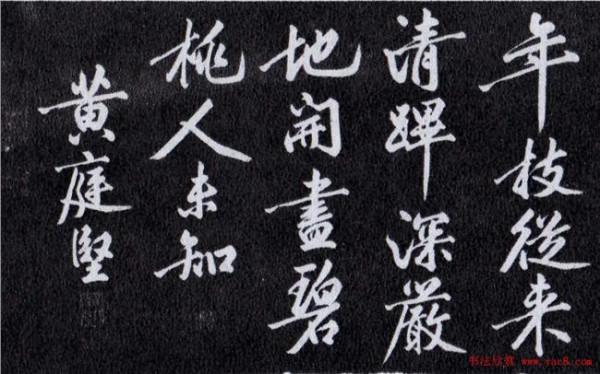 年枝從来
清蹕深嚴
地開盡碧
桃人未知
黄庭堅
书法欣赏 www.yac8.com